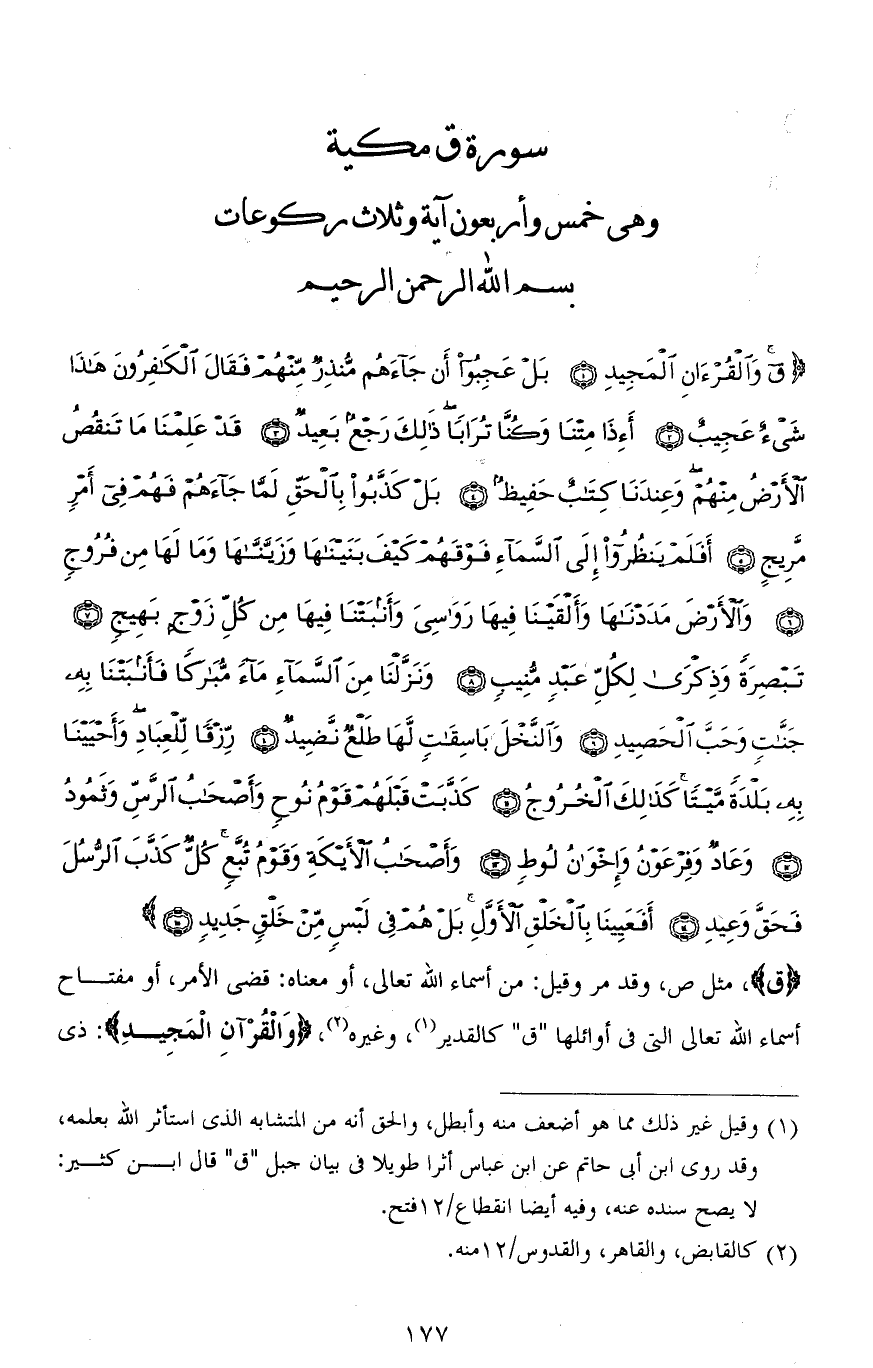 سورة ق مكية
وهى خمس وأربعون آية وثلاث ركوعات
بسم الله الرحمن الرحيم
﴿ قٓۚ وَٱلْقُرْءَانِ ٱلْمَجِيدِ ۝١ بَلْ عَجِبُوٓا۟ أَن جَآءَهُم مُّنذِرٌ مِّنْهُمْ فَقَالَ ٱلْكَٰفِرُونَ هَٰذَا
شَىْءٌ عَجِيبٌ ۝٢ أَءِذَا مِتْنَا وَكُنَّا تُرَابًاۖ ذَٰلِكَ رَجْعٌۢ بَعِيدٌ ۝٣ قَدْ عَلِمْنَا مَا تَنقُصُ
ٱلْأَرْضُ مِنْهُمْۖ وَعِندَنَا كِتَٰبٌ حَفِيظٌۢ ۝٤ بَلْ كَذَّبُوا۟ بِٱلْحَقِّ لَمَّا جَآءَهُمْ فَهُمْ فِىٓ أَمْرٍ
مَّرِيجٍ ۝٥ أَفَلَمْ يَنظُرُوٓا۟ إِلَى ٱلسَّمَآءِ فَوْقَهُمْ كَيْفَ بَنَيْنَٰهَا وَزَيَّنَّٰهَا وَمَا لَهَا مِن فُرُوجٍ
۝٦ وَٱلْأَرْضَ مَدَدْنَٰهَا وَأَلْقَيْنَا فِيهَا رَوَٰسِىَ وَأَنۢبَتْنَا فِيهَا مِن كُلِّ زَوْجٍۭ بَهِيجٍ ۝٧
تَبْصِرَةً وَذِكْرَىٰ لِكُلِّ عَبْدٍ مُّنِيبٍ ۝٨ وَنَزَّلْنَا مِنَ ٱلسَّمَآءِ مَآءً مُّبَٰرَكًا فَأَنۢبَتْنَا بِهِۦ
جَنَّٰتٍ وَحَبَّ ٱلْحَصِيدِ ۝٩ وَٱلنَّخْلَ بَاسِقَٰتٍ لَّهَا طَلْعٌ نَّضِيدٌ ۝١٠ رِّزْقًا لِّلْعِبَادِۖ وَأَحْيَيْنَا
بِهِۦ بَلْدَةً مَّيْتًاۚ كَذَٰلِكَ ٱلْخُرُوجُ ۝١١ كَذَّبَتْ قَبْلَهُمْ قَوْمُ نُوحٍ وَأَصْحَٰبُ ٱلرَّسِّ وَثَمُودُ
۝١٢ وَعَادٌ وَفِرْعَوْنُ وَإِخْوَٰنُ لُوطٍ ۝١٣ وَأَصْحَٰبُ ٱلْأَيْكَةِ وَقَوْمُ تُبَّعٍۚ كُلٌّ كَذَّبَ ٱلرُّسُلَ
فَحَقَّ وَعِيدِ ۝١٤ أَفَعَيِينَا بِٱلْخَلْقِ ٱلْأَوَّلِۚ بَلْ هُمْ فِى لَبْسٍ مِّنْ خَلْقٍ جَدِيدٍ ۝١٥ ﴾
﴿ق﴾، مثل ص، وقد مر وقيل: من أسماء الله تعالى، أو معناه: قضى الأمر، أو مفتـاح
أسماء الله تعالى التى فى أوائلها "ق" كالقدير(١)، وغيره(٢)، ﴿وَالْقُرْآنِ الْمَجِيـدِ﴾: ذى
(١) وقيل غير ذلك مما هو أضعف منه وأبطل، والحق أنه من المتشابه الذى استأثر الله بعلمه،
وقد روى ابن أبى حاتم عن ابن عباس أثرا طويلا فى بيان جبل "ق" قال ابـن كثـير:
لا يصح سنده عنه، وفيه أيضا انقطاع/١٢فتح.
(٢) كالقابض، والقاهر، والقدوس/١٢منه.
١٧٧